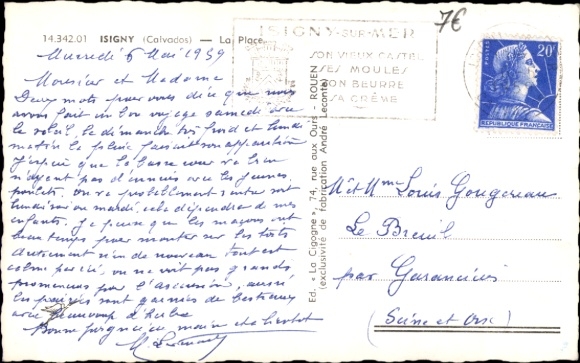 14.342.01 ISIGNY (Calvados) — La Place
7€
ISIGNY-SUR-MER
SON VIEUX CASTEL
SES MOULES
SON BEURRE
SA CRÈME
POSTES
20F
REPUBLIQUE FRANÇAISE
Mercredi 6 Mai 1959
Monsieur et Madame
Deux mots pour vous dire que nous
avons fait un bon voyage samedi avec
le soleil, le dimanche très froid et lundi
matin la pluie faisait son apparition
J'espère que la basse cour va bien
n'ayant pas d'ennuis avec les jeunes
poulets. On va probablement rentrer soit
lundi soir ou mardi, cela dépendra de mes
enfants. Je pense que les maçons ont
beau temps pour monter sur les toits
Autrement rien de nouveau tout est
calme par ici, on ne voit pas grands
promeneurs pour l'ascension, aussi
les prairies sont garnies de bestiaux
avec beaucoup d'herbe
Bonne poignée de main et à bientôt
Ed. « La Cigogne », 74, rue aux Ours - ROUEN
(exclusivité de fabrication André Leconte)
Mr et Mme Louis Gougereau
Le Breuil
par Garancières
(Seine et Oise)